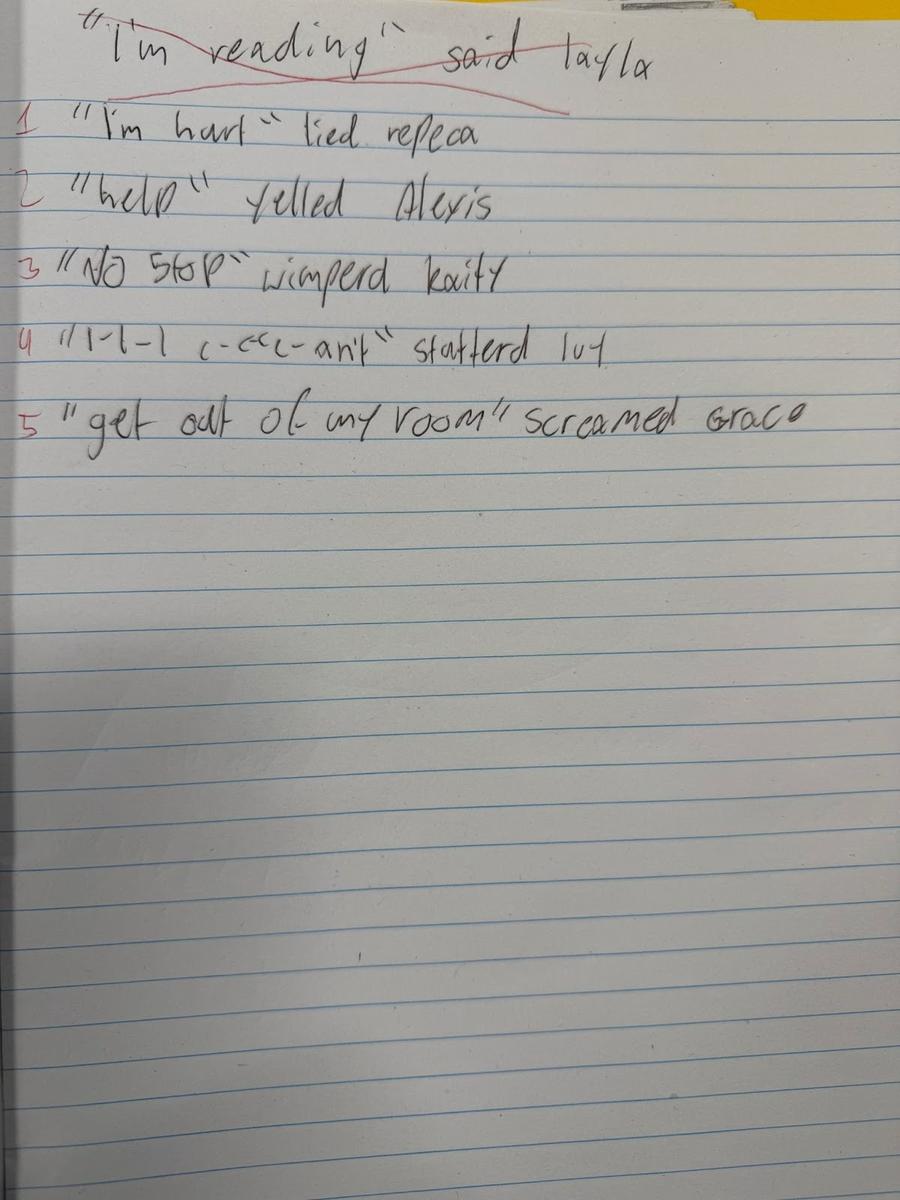 "I'm reading" said tayla
1 "I'm hurt" lied repeca
2 "help" yelled Alexis
3 "No stop" wimperd kaity
4 "I-I-I c-ccc-an't" statterd luy
5 "get out of my room" screamed Grace